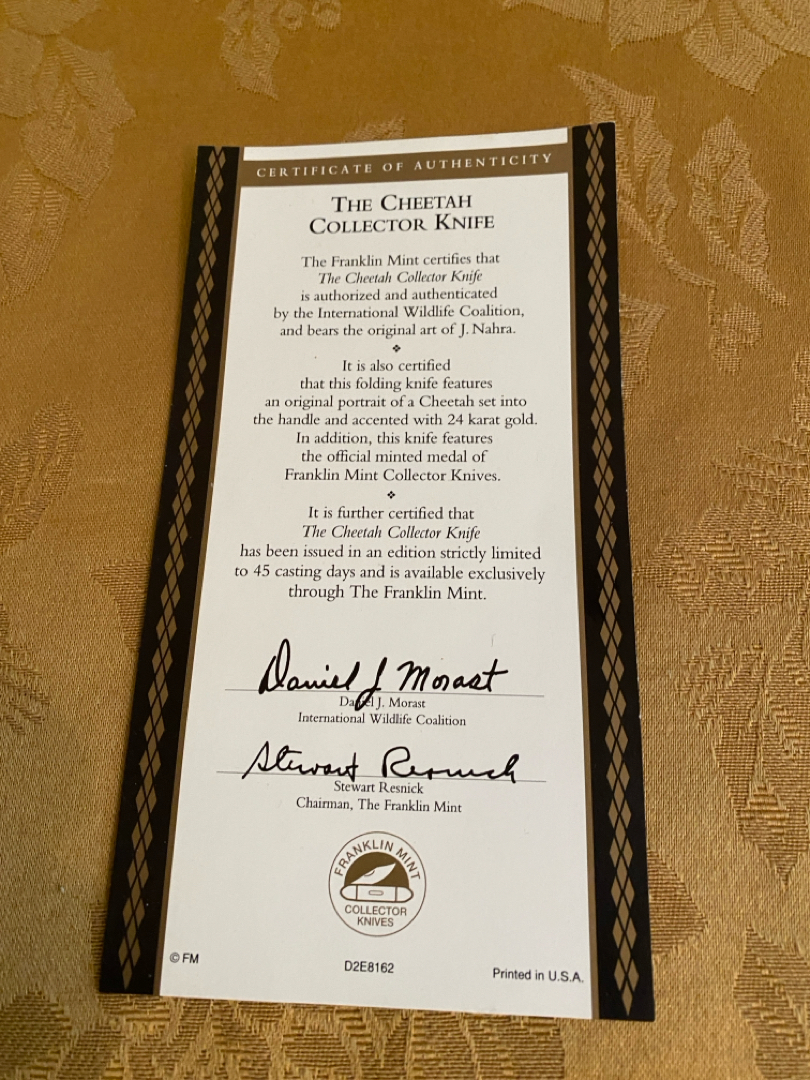 CERTIFICATE OF AUTHENTICITY
THE CHEETAH
COLLECTOR KNIFE
The Franklin Mint certifies that
The Cheetah Collector Knife
is authorized and authenticated
by the International Wildlife Coalition,
and bears the original art of J. Nahra.
It is also certified
that this folding knife features
an original portrait of a Cheetah set into
the handle and accented with 24 karat gold.
In addition, this knife features
the official minted medal of
Franklin Mint Collector Knives.
It is further certified that
The Cheetah Collector Knife
has been issued in an edition strictly limited
to 45 casting days and is available exclusively
through The Franklin Mint.
Daniel J Morast
Daniel J. Morast
International Wildlife Coalition
Stewart Resnick
Stewart Resnick
Chairman, The Franklin Mint
FRANKLIN MINT
COLLECTOR
KNIVES
© FM
D2E8162
Printed in U.S.A.